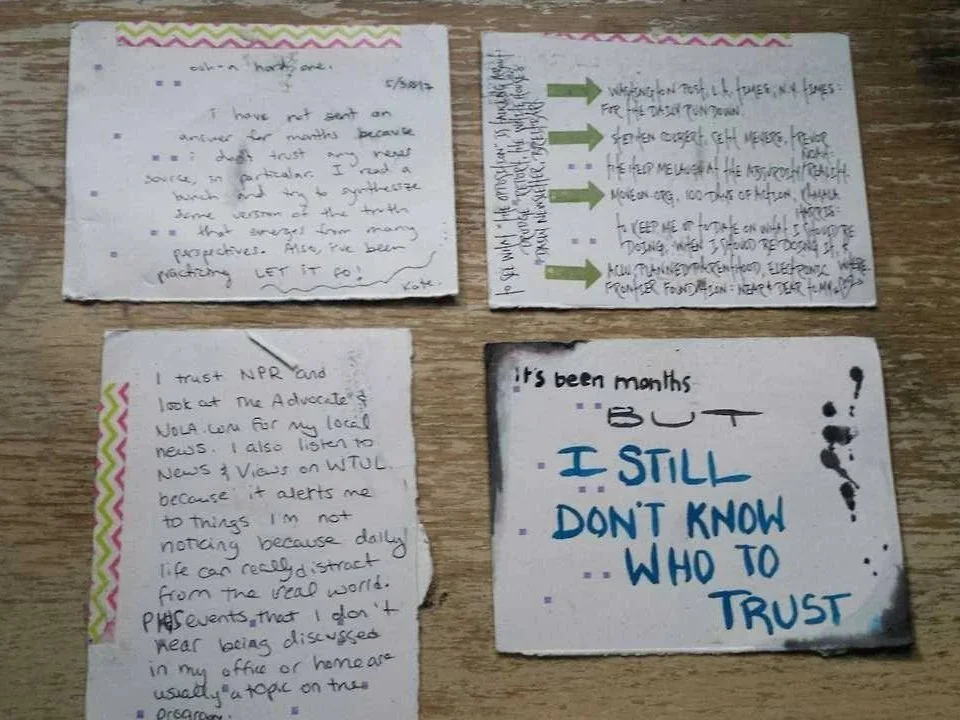 ask a hard one.
5/3/2017
i have not sent an
answer for months because
i don't trust any news
source, in particular. I read a
bunch and try to synthesize
some version of the truth
that emerges from many
perspectives. Also, i've been
practicing LET IT GO!
Kate.
TO SEE WHAT "THE OPPOSITION" IS TALKING ABOUT:
DRUDGE REPORT, THE WHITE HOUSE'S
DAILY NEWSLETTER, BREITBART
WASHINGTON POST, L.A. TIMES, N.Y. TIMES:
FOR THE DAILY RUNDOWN.
STEPHEN COLBERT, SETH MEYERS, TREVOR
NOAH:
THE HELP ME LAUGH AT THE ABSURDITY/REALITY.
MOVEON.ORG, 100 DAYS OF ACTION, KAMALA
HARRIS:
TO KEEP ME UP TO DATE ON WHAT I SHOULD BE
DOING, WHEN I SHOULD BE DOING IT, &
WHERE.
ACLU, PLANNED PARENTHOOD, ELECTRONIC
FRONTIER FOUNDATION: NEAR & DEAR TO MY
I trust NPR and
look at The Advocate &
NOLA.com For my local
news. I also listen to
News & Views on WTUL
because it alerts me
to things I'm not
noticing because daily
life can really distract
from the real world.
events that I don't
hear being discussed
in my office or home are
usually a topic on the
program.
it's been months
BUT
I STILL
DON'T KNOW
WHO TO
TRUST